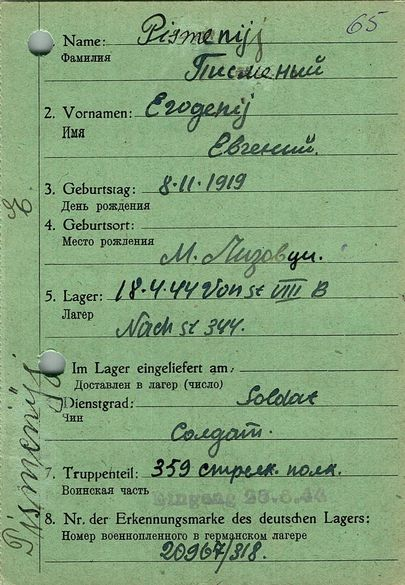 65
Name: Pismenij
Фамилия
Писменый
2. Vornamen: Evgenij
Имя
Евгений.
3. Geburtstag: 8.11.1919
День рождения
4. Geburtsort:
Место рождения
М.
5. Lager: 18.4.44 Von st VIII B
Лагер
Nach st 344.
Im Lager eingeliefert am:
Доставлен в лагер (число)
Dienstgrad: Soldat
Чин
Солдат.
7. Truppenteil: 359 стрелк. полк.
Воинская часть
Eingang
8. Nr. der Erkennungsmarke des deutschen Lagers:
Номер военнопленного в германском лагере
20967/318.
Pismenij E.